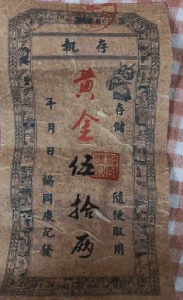 執存
存儲
隨便取用
黃金伍拾兩
年月日協同慶記發